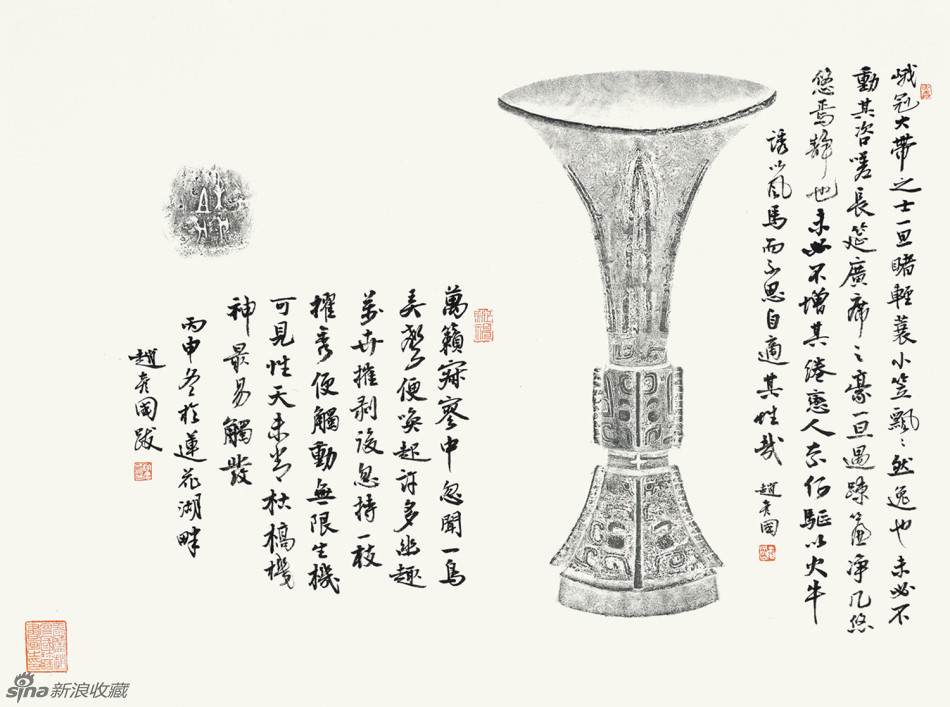 峨冠大帶之士一旦睹輕蓑小笠飄〻然逸也未必不
動其咨嗟長筵廣席之豪一旦遇踈簾淨几悠
悠焉靜也未必不增其綣戀人奈何驅以火牛
誘以風馬而不思自適其性哉
趙彥國
萬籟寂寥中忽聞一鳥
弄聲便喚起許多幽趣
萬卉摧剥後忽持一枝
擢秀便觸動無限生機
可見性天未常枯槁機
神最易觸發
丙申冬於蓮花湖畔
趙彥國跋
sina新浪收藏